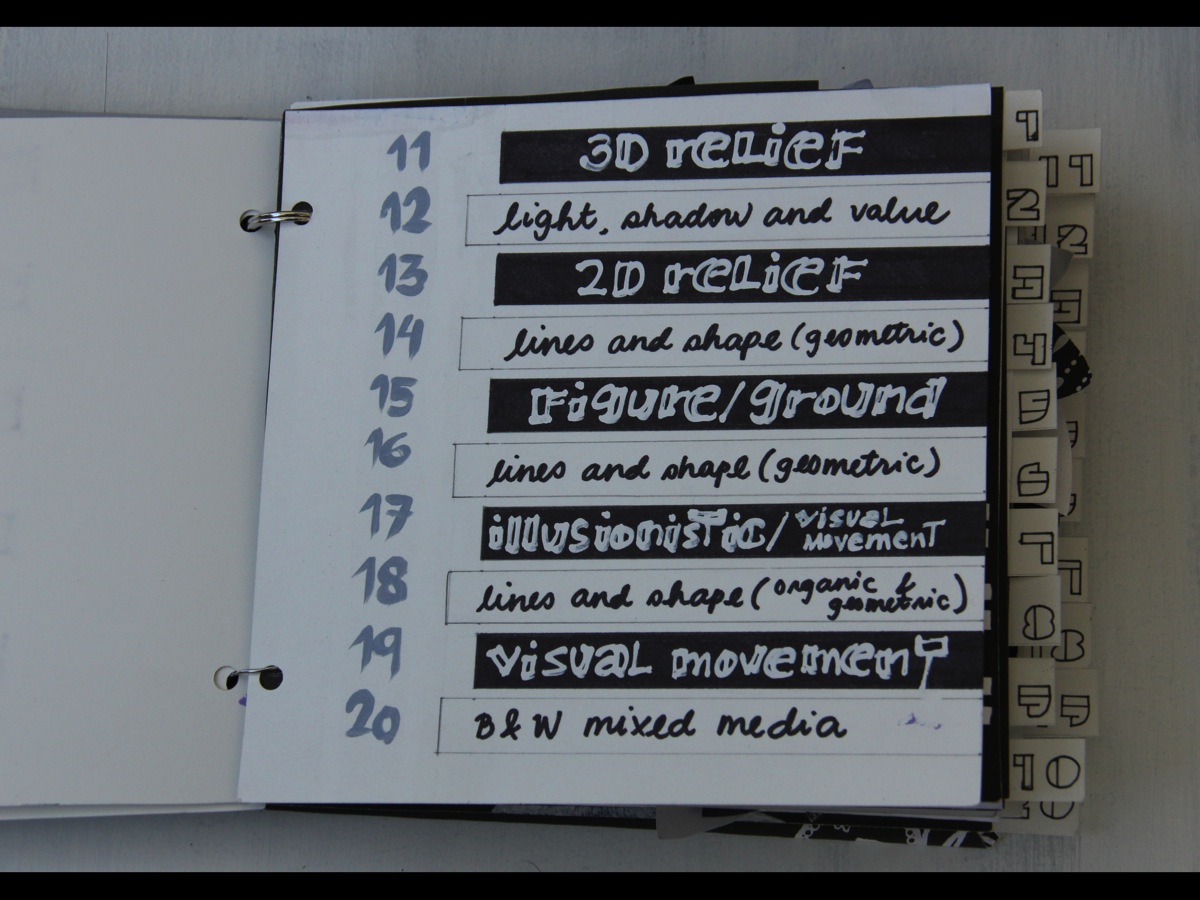 11 3D reLieF
12 light, shadow and value
13 2D reLieF
14 lines and shape (geometric)
15 Figure/ground
16 lines and shape (geometric)
17 illusionisTic/ visuaL movemenT
18 lines and shape (organic & geometric)
19 visuaL movemenT
20 B&W mixed media
1
11
2
12
3
4
5
6
7
8
9
10